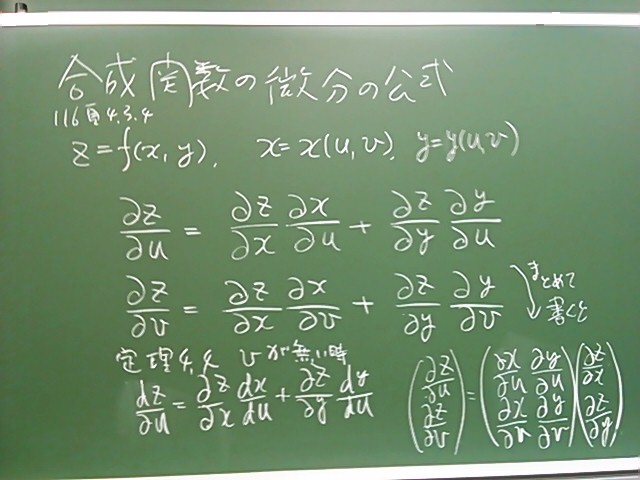 合成関数の微分の公式
116頁 4.3.4
z=f(x,y), x=x(u,v), y=y(u,v)
∂z/∂u = ∂z/∂x ∂x/∂u + ∂z/∂y ∂y/∂u
∂z/∂v = ∂z/∂x ∂x/∂v + ∂z/∂y ∂y/∂v
まとめて
書くと
定理4.4 vが無い時
dz/du = ∂z/∂x dx/du + ∂z/∂y dy/du
(∂z/∂u ∂z/∂v) = (∂x/∂u ∂y/∂u ∂x/∂v ∂y/∂v)(∂z/∂x ∂z/∂y)